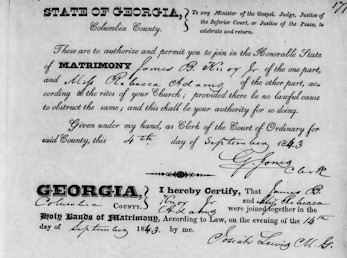 171
STATE OF GEORGIA,
Columbia County.
To any Minister of the Gospel, Judge, Justice of
the Inferior Court, or Justice of the Peace, to
celebrate and return.
These are to authorize and permit you to join in the Honorable State
of MATRIMONY James B. Knox Jr of the one part,
and Miss Rebecca Adams of the other part, ac-
cording to the rites of your Church; provided there be no lawful cause
to obstruct the same; and this shall be your authority for so doing.
Given under my hand, as Clerk of the Court of Ordinary for
said County, this 4th day of September 1843
G Jones
Clerk
GEORGIA,
Columbia COUNTY.
I hereby Certify, That James B
Knox Jr and Miss Rebecca
Adams were joined together in the
Holy Bands of Matrimony, According to Law, on the evening of the 14th
day of September 1843. by me.
Josiah Lewis M.G.